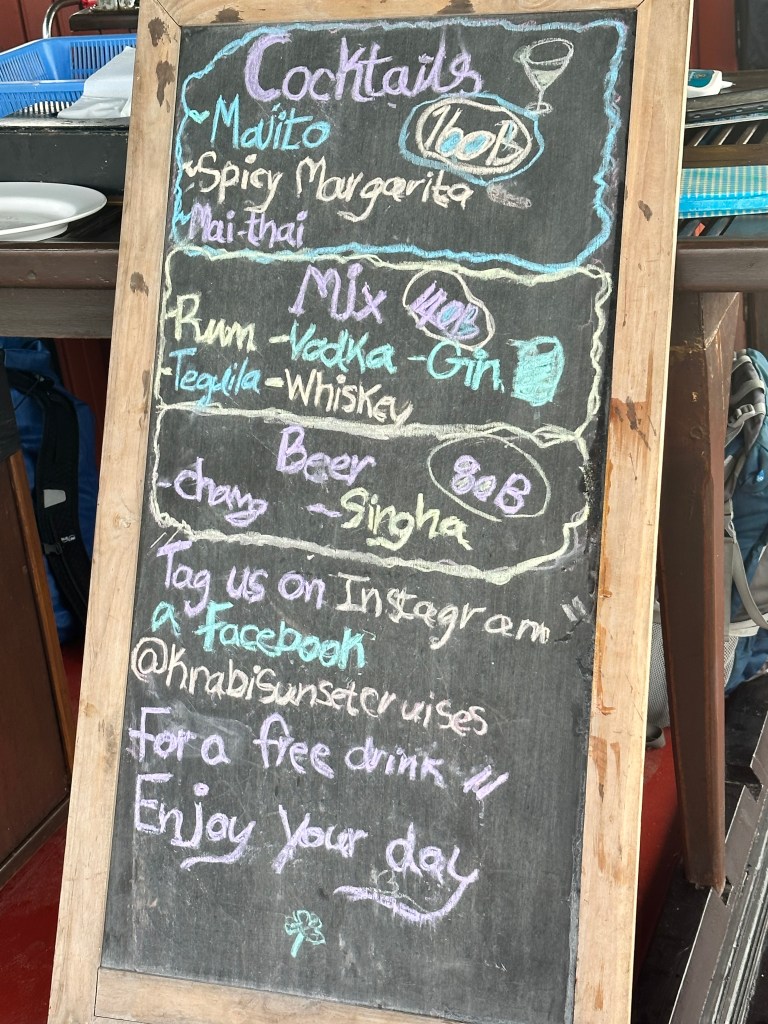 Cocktails
- Mojito 160B
- Spicy Margarita
- Mai-thai
Mix 140B
- Rum - Vodka - Gin
- Tequila - Whiskey
Beer 80B
- chang - Singha
Tag us on Instagram
a Facebook
@Krabisunsetcruises
For a free drink !!
Enjoy your day